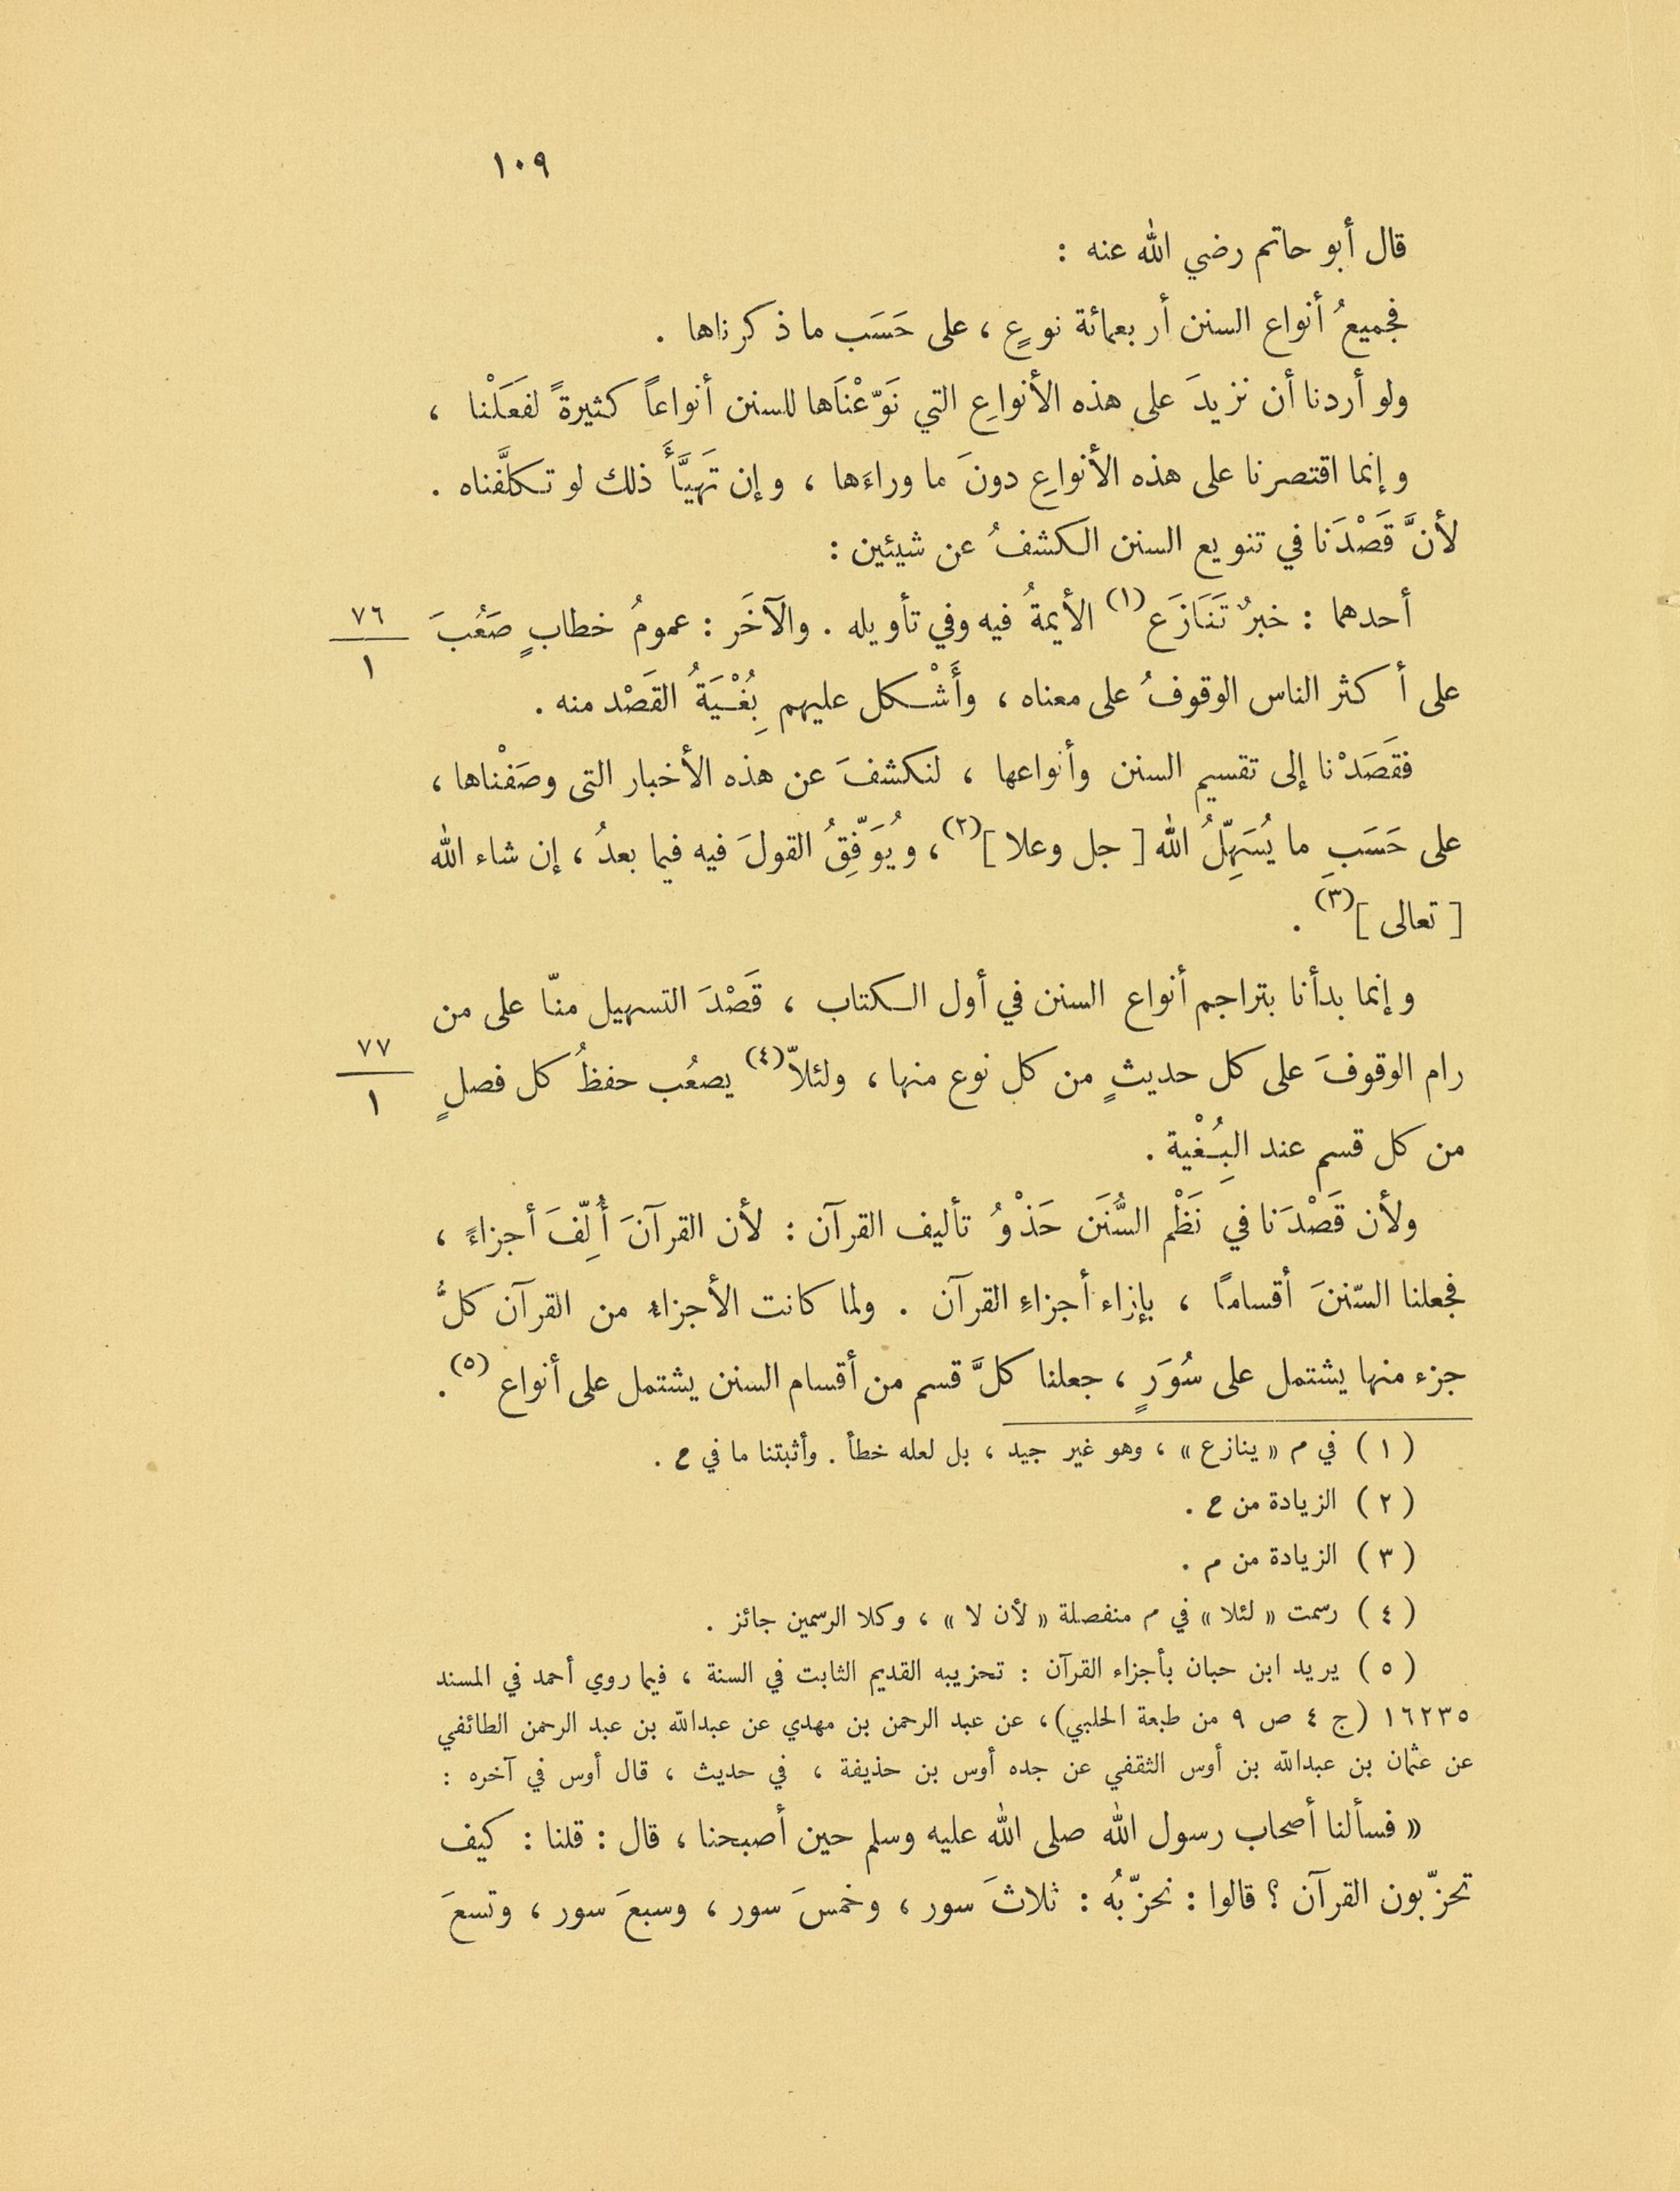 ١٠٩
قال أبو حاتم رضي الله عنه :
فجميعُ أنواع السنن أربعمائة نوعٍ ، على حَسَب ما ذكرناها .
ولو أردنا أن نزيدَ على هذه الأنواعِ التي نَوّعْنَاها للسنن أنواعاً كثيرةً لفَعَلْنا ،
وإنما اقتصرنا على هذه الأنواعِ دونَ ما وراءَها ، وإن تَهَيَّأَ ذلك لو تكلَّفناه .
لأنَّ قَصْدَنا في تنويع السنن الكشفُ عن شيئين :
أحدهما : خبرٌ تَنَازَع (١) الأيمةُ فيه وفي تأويله . والآخَر : عمومُ خطابٍ صَعُبَ
٧٦
١
على أكثر الناس الوقوفُ على معناه ، وأَشْكل عليهم بِغُْيَةُ القَصْد منه .
فقَصَدْنا إلى تقسيم السنن وأنواعها ، لنكشفَ عن هذه الأخبار التى وصَفْناها ،
على حَسَبِ ما يُسَهِّلُ الله [ جل وعلا ](٢) ، ويُوَفِّقُ القولَ فيه فيما بعدُ ، إن شاء الله
[ تعالى ](٣) .
وإنما بدأنا بتراجم أنواع السنن في أول الكتاب ، قَصْدَ التسهيل منّا على من
رام الوقوفَ على كل حديثٍ من كل نوع منها ، ولئلاّ (٤) يصعُب حفظُ كل فصلٍ
٧٧
١
من كل قسم عند البِغُْية .
ولأن قَصْدَنا في نَظْم السُّنَن حَذْوُ تأليف القرآن : لأن القرآنَ أُلِّفَ أجزاءً ،
فجعلنا السّننَ أقسامًا ، بإزاء أجزاءِ القرآن . ولما كانت الأجزاءُ من القرآن كلُّ
جزء منها يشتمل على سُوَرٍ ، جعلنا كلَّ قسم من أقسام السنن يشتمل على أنواع (٥) .
( ١ ) في م « ينازع » ، وهو غير جيد ، بل لعله خطأ . وأثبتنا ما في ح .
( ٢ ) الزيادة من ح .
( ٣ ) الزيادة من م .
( ٤ ) رسمت « لئلا » في م منفصلة « لأن لا » ، وكلا الرسمين جائز .
( ٥ ) يريد ابن حبان بأجزاء القرآن : تحزيبه القديم الثابت في السنة ، فيما روي أحمد في المسند
١٦٢٣٥ (ج ٤ ص ٩ من طبعة الحلبي)، عن عبد الرحمن بن مهدي عن عبدالله بن عبد الرحمن الطائفي
عن عثمان بن عبدالله بن أوس الثقفي عن جده أوس بن حذيفة ، في حديث ، قال أوس في آخره :
« فسألنا أصحاب رسول الله صلى الله عليه وسلم حين أصبحنا ، قال : قلنا : كيف
تحزّبون القرآن ؟ قالوا : نحزّبُه : ثلاثَ سور ، وخمسَ سور ، وسبعَ سور ، وتسعَ